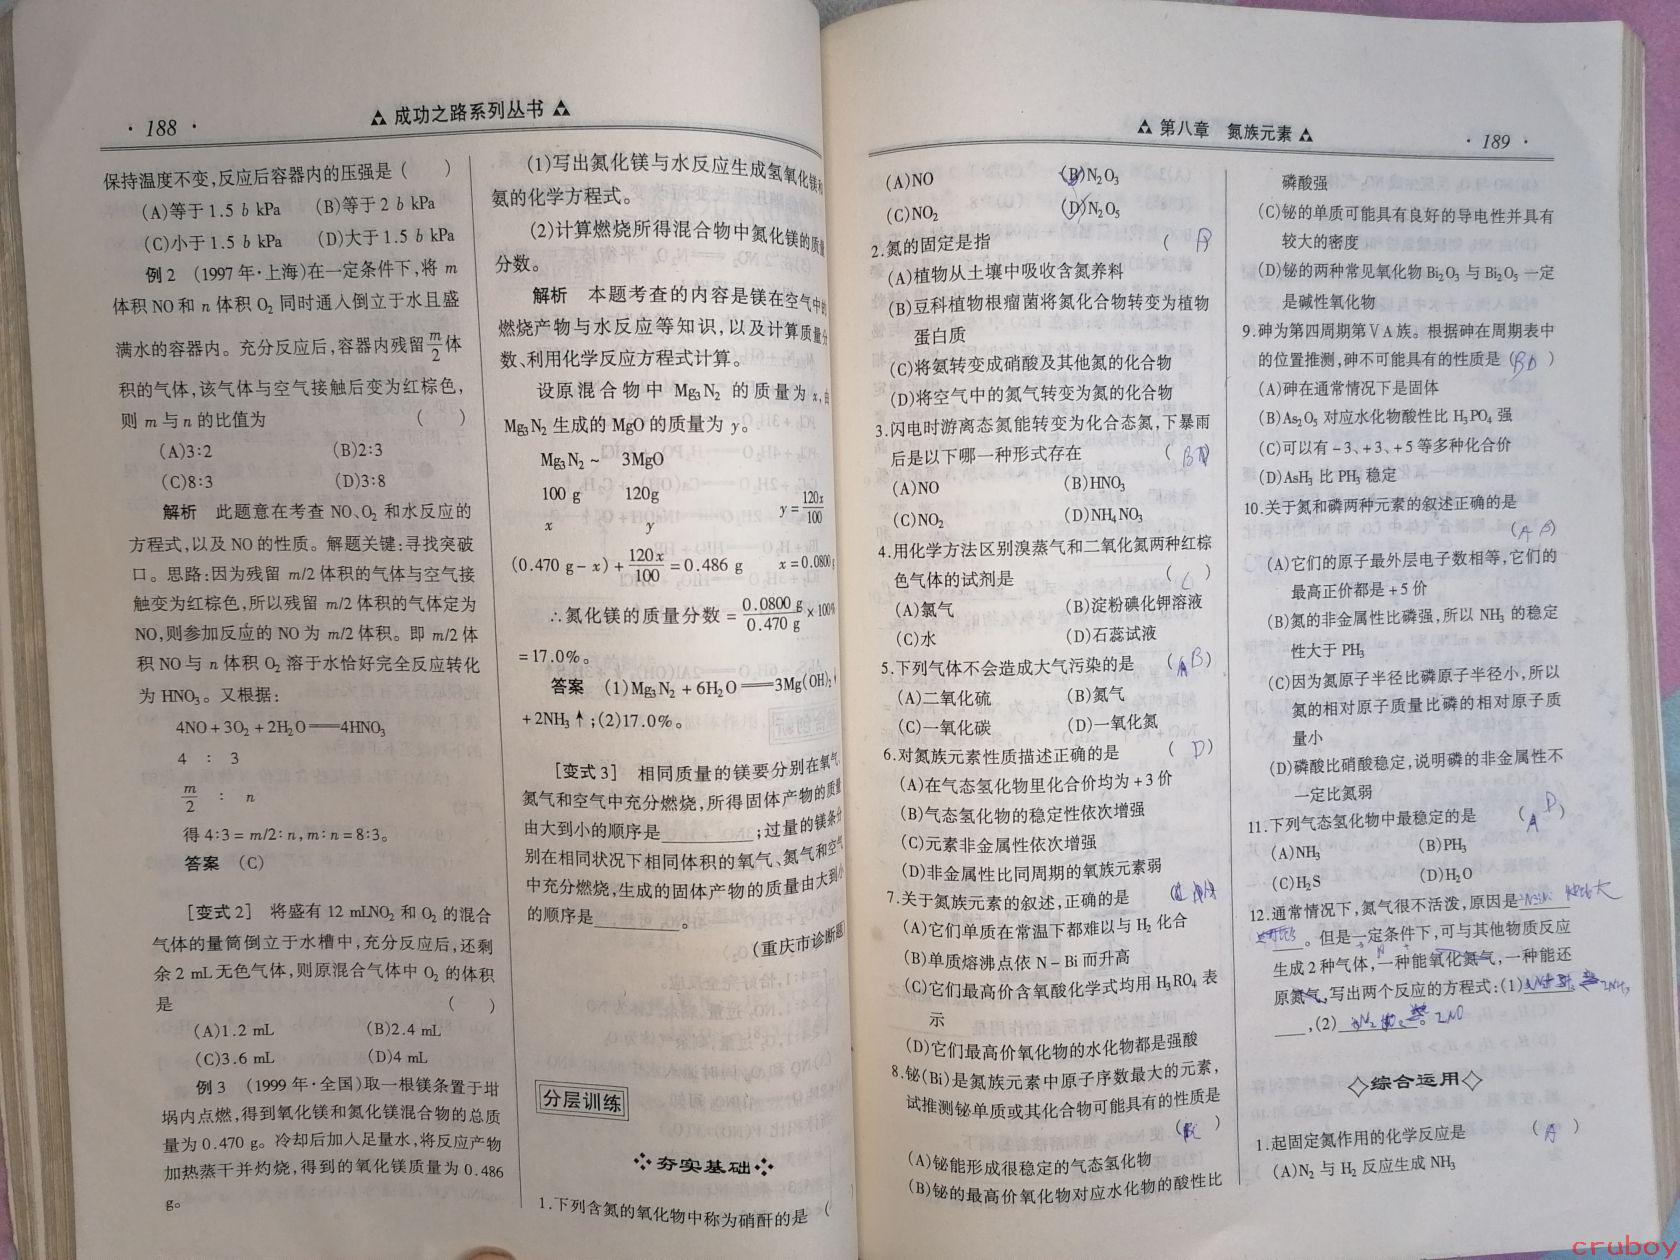 · 188 ·
成功之路系列丛书
保持温度不变,反应后容器内的压强是 (    )
(A)等于 1.5 b kPa    (B)等于 2 b kPa
(C)小于 1.5 b kPa    (D)大于 1.5 b kPa
例 2  (1997 年·上海)在一定条件下,将 m
体积 NO 和 n 体积 O₂ 同时通入倒立于水且盛
满水的容器内。充分反应后,容器内残留 m/2 体
积的气体,该气体与空气接触后变为红棕色,
则 m 与 n 的比值为 (    )
(A)3:2    (B)2:3
(C)8:3    (D)3:8
解析  此题意在考查 NO、O₂ 和水反应的
方程式,以及 NO 的性质。解题关键:寻找突破
口。思路:因为残留 m/2 体积的气体与空气接
触变为红棕色,所以残留 m/2 体积的气体定为
NO,则参加反应的 NO 为 m/2 体积。即 m/2 体
积 NO 与 n 体积 O₂ 溶于水恰好完全反应转化
为 HNO₃。又根据:
4NO + 3O₂ + 2H₂O══4HNO₃
4 : 3
m/2 : n
得 4:3 = m/2:n,m:n = 8:3。
答案  (C)
[变式 2]  将盛有 12 mLNO₂ 和 O₂ 的混合
气体的量筒倒立于水槽中,充分反应后,还剩
余 2 mL 无色气体,则原混合气体中 O₂ 的体积
是 (    )
(A)1.2 mL    (B)2.4 mL
(C)3.6 mL    (D)4 mL
例 3  (1999 年·全国)取一根镁条置于坩
埚内点燃,得到氧化镁和氮化镁混合物的总质
量为 0.470 g。冷却后加入足量水,将反应产物
加热蒸干并灼烧,得到的氧化镁质量为 0.486
g。
(1)写出氮化镁与水反应生成氢氧化镁和
氨的化学方程式。
(2)计算燃烧所得混合物中氮化镁的质量
分数。
解析  本题考查的内容是镁在空气中的
燃烧产物与水反应等知识,以及计算质量分
数、利用化学反应方程式计算。
设原混合物中 Mg₃N₂ 的质量为 x,由
Mg₃N₂ 生成的 MgO 的质量为 y。
Mg₃N₂ ~ 3MgO
100 g    120g    y = 120x/100
x    y
(0.470 g - x) + 120x/100 = 0.486 g    x = 0.0800
∴氮化镁的质量分数 = 0.0800 g/0.470 g × 100%
= 17.0%。
答案  (1)Mg₃N₂ + 6H₂O══3Mg(OH)₂↓
+ 2NH₃↑;(2)17.0%。
[变式 3]  相同质量的镁要分别在氧气、
氮气和空气中充分燃烧,所得固体产物的质量
由大到小的顺序是________;过量的镁条分
别在相同状况下相同体积的氧气、氮气和空气
中充分燃烧,生成的固体产物的质量由大到小
的顺序是________。
(重庆市诊断题
分层训练
夯实基础
1.下列含氮的氧化物中称为硝酐的是 (
第八章  氮族元素
· 189 ·
(A)NO    (B)N₂O₃
(C)NO₂    (D)N₂O₅
2.氮的固定是指 (    )
(A)植物从土壤中吸收含氮养料
(B)豆科植物根瘤菌将氮化合物转变为植物
蛋白质
(C)将氨转变成硝酸及其他氮的化合物
(D)将空气中的氮气转变为氮的化合物
3.闪电时游离态氮能转变为化合态氮,下暴雨
后是以下哪一种形式存在 ( B    )
(A)NO    (B)HNO₃
(C)NO₂    (D)NH₄NO₃
4.用化学方法区别溴蒸气和二氧化氮两种红棕
色气体的试剂是 ( C )
(A)氯气    (B)淀粉碘化钾溶液
(C)水    (D)石蕊试液
5.下列气体不会造成大气污染的是 ( A B )
(A)二氧化硫    (B)氮气
(C)一氧化碳    (D)一氧化氮
6.对氮族元素性质描述正确的是 ( D )
(A)在气态氢化物里化合价均为 + 3 价
(B)气态氢化物的稳定性依次增强
(C)元素非金属性依次增强
(D)非金属性比同周期的氧族元素弱
7.关于氮族元素的叙述,正确的是
(A)它们单质在常温下都难以与 H₂ 化合
(B)单质熔沸点依 N - Bi 而升高
(C)它们最高价含氧酸化学式均用 H₃RO₄ 表
示
(D)它们最高价氧化物的水化物都是强酸
8.铋(Bi)是氮族元素中原子序数最大的元素,
试推测铋单质或其化合物可能具有的性质是
(    )
(A)铋能形成很稳定的气态氢化物
(B)铋的最高价氧化物对应水化物的酸性比
磷酸强
(C)铋的单质可能具有良好的导电性并具有
较大的密度
(D)铋的两种常见氧化物 Bi₂O₃ 与 Bi₂O₅ 一定
是碱性氧化物
9.砷为第四周期第ⅤA族。根据砷在周期表中
的位置推测,砷不可能具有的性质是 ( BD )
(A)砷在通常情况下是固体
(B)As₂O₅ 对应水化物酸性比 H₃PO₄ 强
(C)可以有 - 3、+ 3、+ 5 等多种化合价
(D)AsH₃ 比 PH₃ 稳定
10.关于氮和磷两种元素的叙述正确的是
( A B )
(A)它们的原子最外层电子数相等,它们的
最高正价都是 + 5 价
(B)氮的非金属性比磷强,所以 NH₃ 的稳定
性大于 PH₃
(C)因为氮原子半径比磷原子半径小,所以
氮的相对原子质量比磷的相对原子质
量小
(D)磷酸比硝酸稳定,说明磷的非金属性不
一定比氮弱
11.下列气态氢化物中最稳定的是 ( A D )
(A)NH₃    (B)PH₃
(C)H₂S    (D)H₂O
12.通常情况下,氮气很不活泼,原因是
。但是一定条件下,可与其他物质反应
生成 2 种气体,一种能氧化氮气,一种能还
原氮气,写出两个反应的方程式:(1)
,(2) 2NO
综合运用
1.起固定氮作用的化学反应是 ( A )
(A)N₂ 与 H₂ 反应生成 NH₃
cruboy